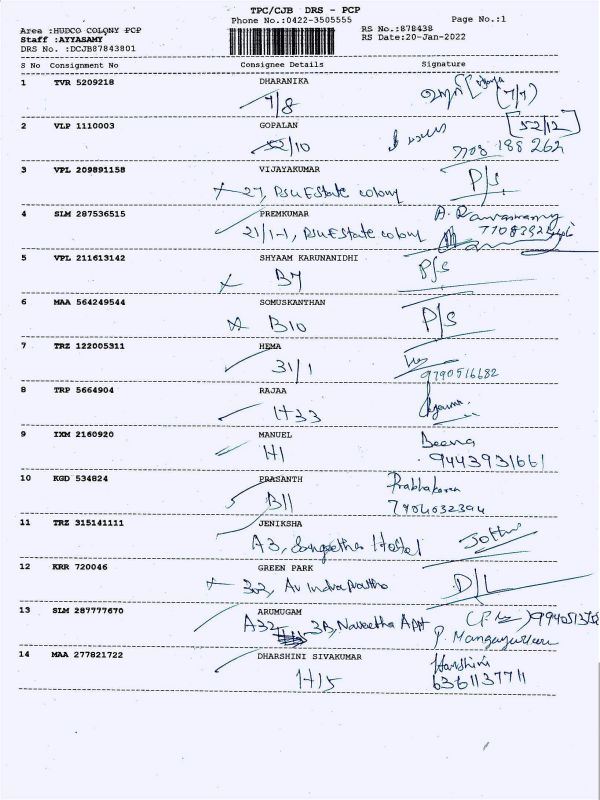 TPC/CJB DRS - PCP
Phone No.:0422-3505555 Page No.:1
Area :HUDCO COLONY PCP RS No.:878438
Staff :AYYASAMY RS Date:20-Jan-2022
DRS No. :DCJB87843801
S No Consignment No Consignee Details Signature
1 TVR 5209218 DHARANIKA
7/8 (7/7)
2 VLP 1110003 GOPALAN
52/10 52/12
7708 188 262
3 VPL 209891158 VIJAYAKUMAR
27, RSU Estate colony P/S
4 SLM 287536515 PREMKUMAR
21/1-1, RSU Estate colony A. Ramaswamy
5 VPL 211613142 SHYAAM KARUNANIDHI
B7 P/S
6 MAA 564249544 SOMUSKANTHAN
B10 P/S
7 TRZ 122005311 HEMA
31/1 9790516682
8 TRP 5664904 RAJAA
H33
9 IXM 2160920 MANUEL
H1 Beena
9443931661
10 KGD 534824 PRASANTH
B11 Prabhakaran
7904032394
11 TRZ 315141111 JENIKSHA
A3, Sangeetha Hostel Jothi
12 KRR 720046 GREEN PARK
302, Av Indraprastha D/L
13 SLM 287777670 ARUMUGAM
A32 3B, Naveetha Appt
14 MAA 277821722 DHARSHINI SIVAKUMAR
H15 Harshini
6361137711